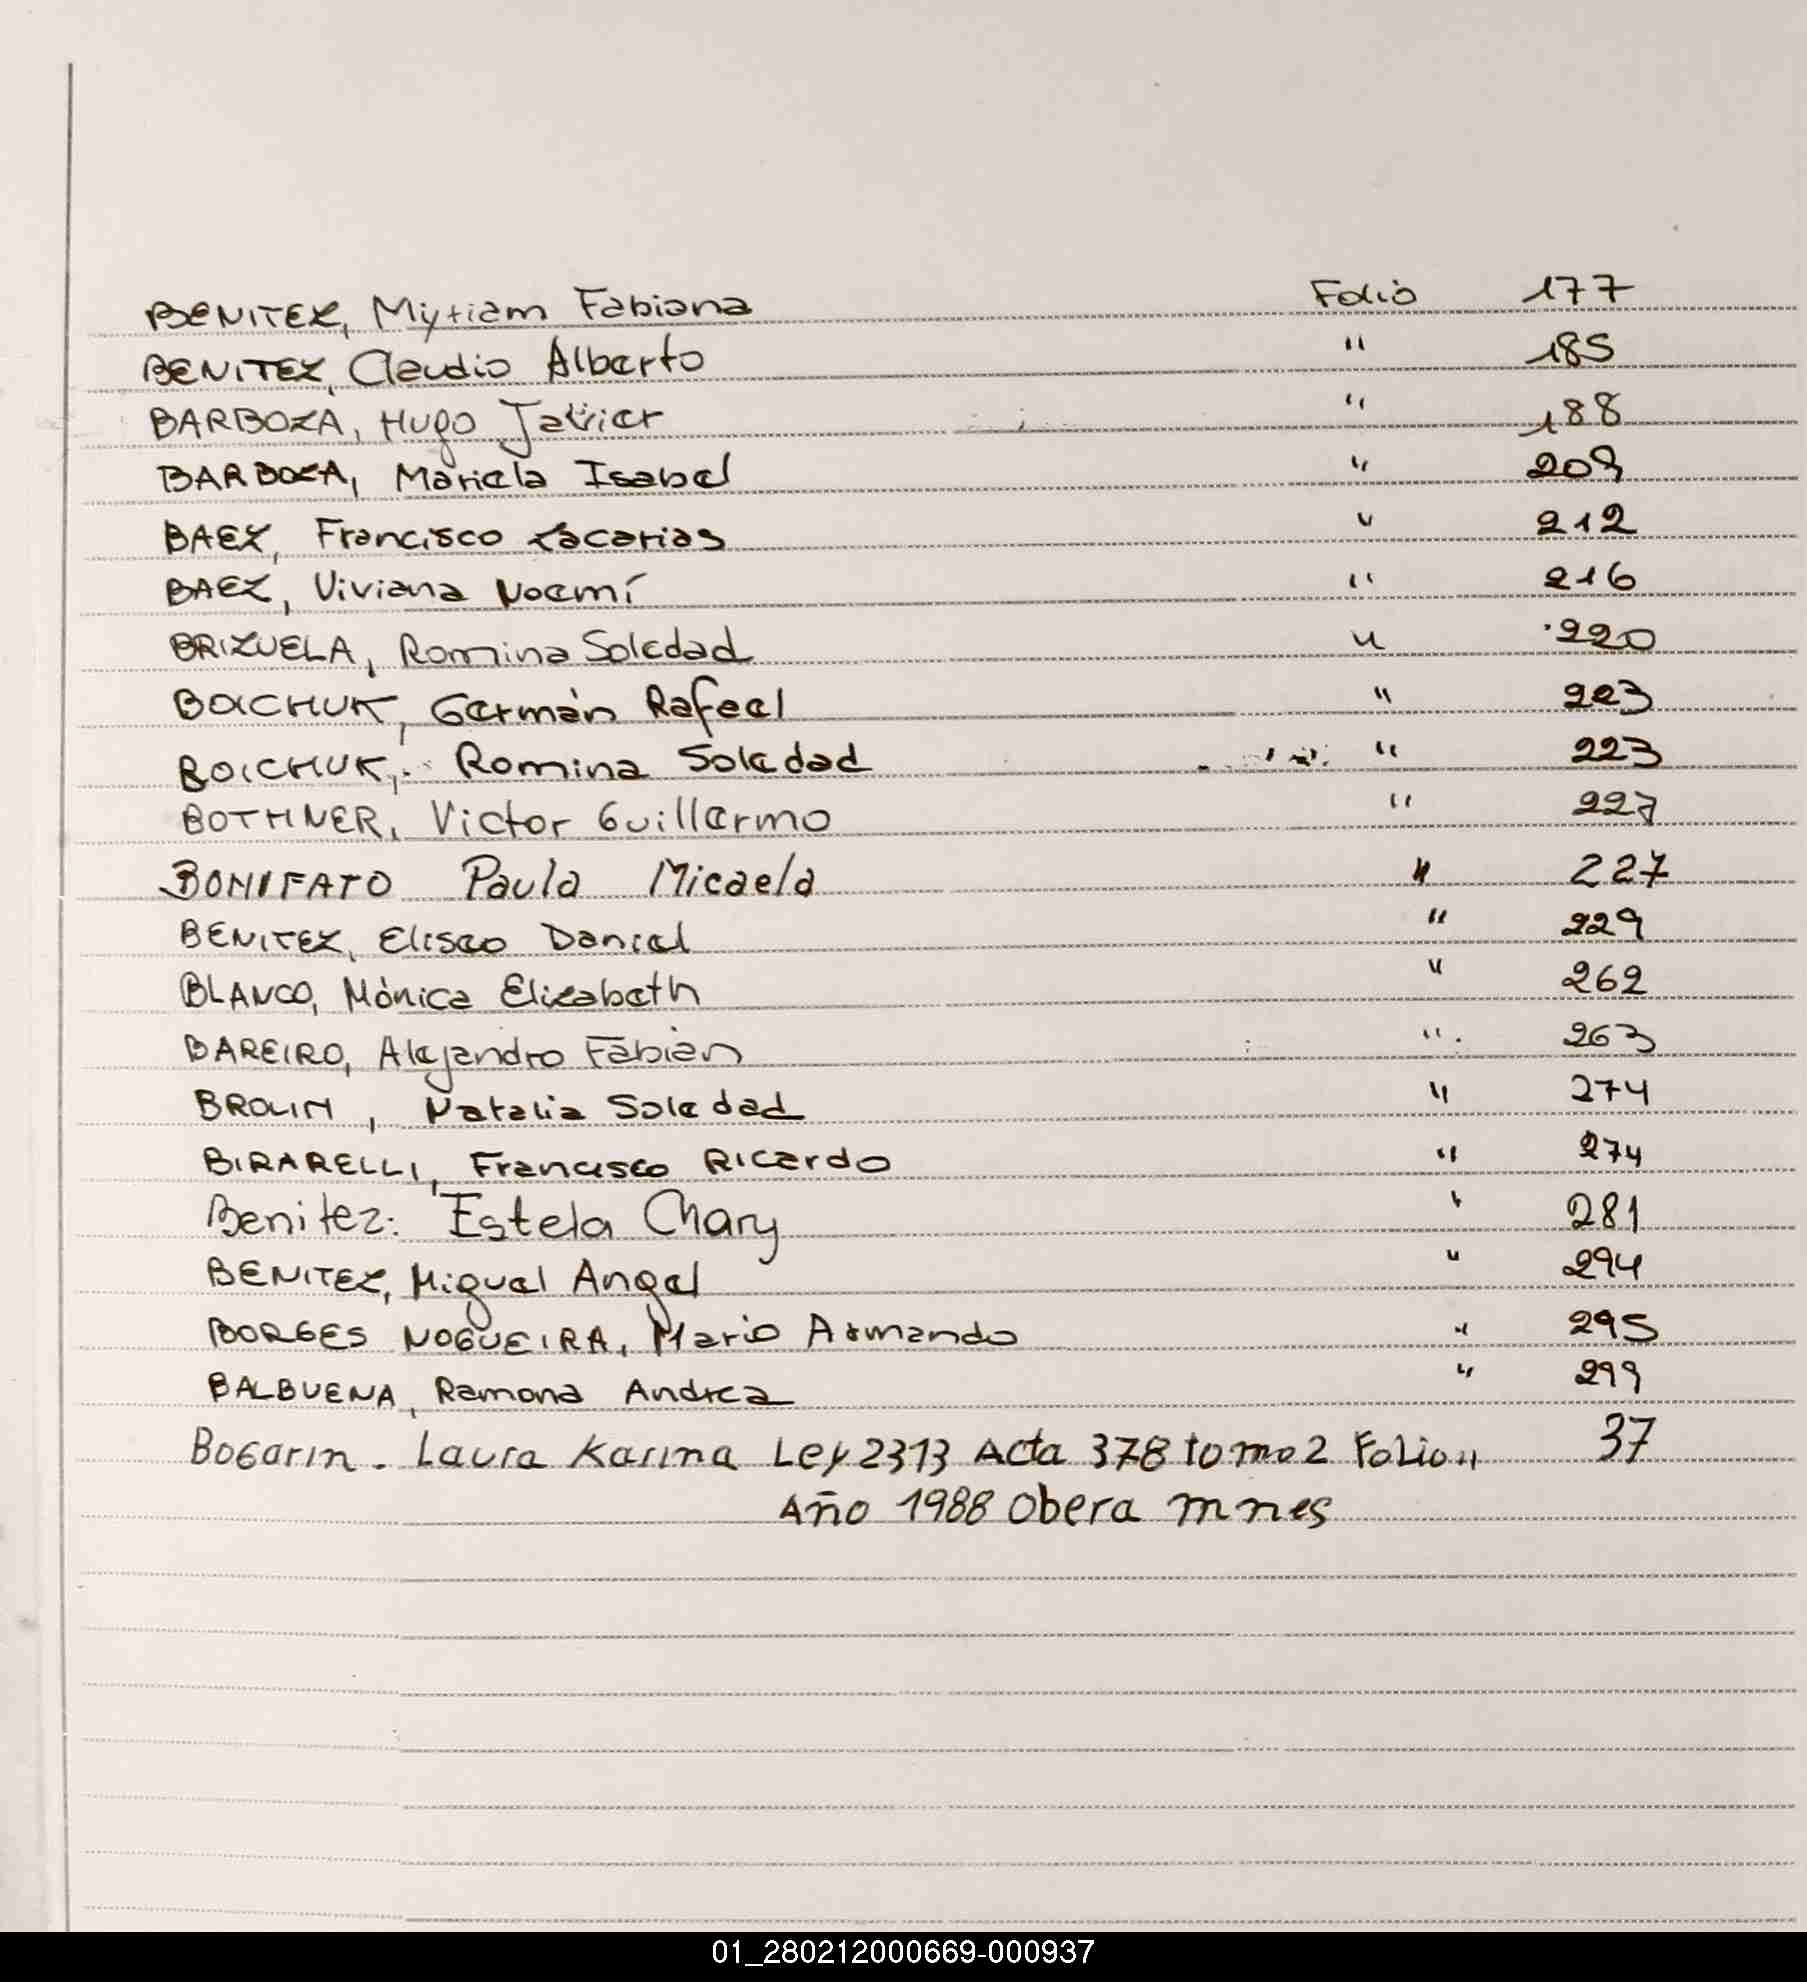 BENITEZ, Myriam Fabiana Folio 177
BENITEZ, Claudio Alberto " 185
BARBOZA, Hugo Javier " 188
BARBOZA, Mariela Isabel " 209
BAEZ, Francisco Zacarias " 212
BAEZ, Viviana Noemí " 216
BRIZUELA, Romina Soledad " 220
BOICHUK, Germán Rafael " 223
BOICHUK, Romina Soledad " 223
BOTHNER, Victor Guillermo " 227
BONIFATO Paula Micaela " 227
BENITEZ, Eliseo Daniel " 229
BLANCO, Mónica Elizabeth " 262
BAREIRO, Alejandro Fabián " 263
BROLIN, Natalia Soledad " 274
BIRARELLI, Francisco Ricardo " 274
Benitez: Estela Mary " 281
BENITEZ, Miguel Angel " 294
BORGES NOGUEIRA, Mario Armando " 295
BALBUENA, Ramona Andrea " 299
Bogarin. Laura Karina Ley 2313 Acta 378 tomo 2 Folio " 37
Año 1988 Obera mnes
01_280212000669-000937